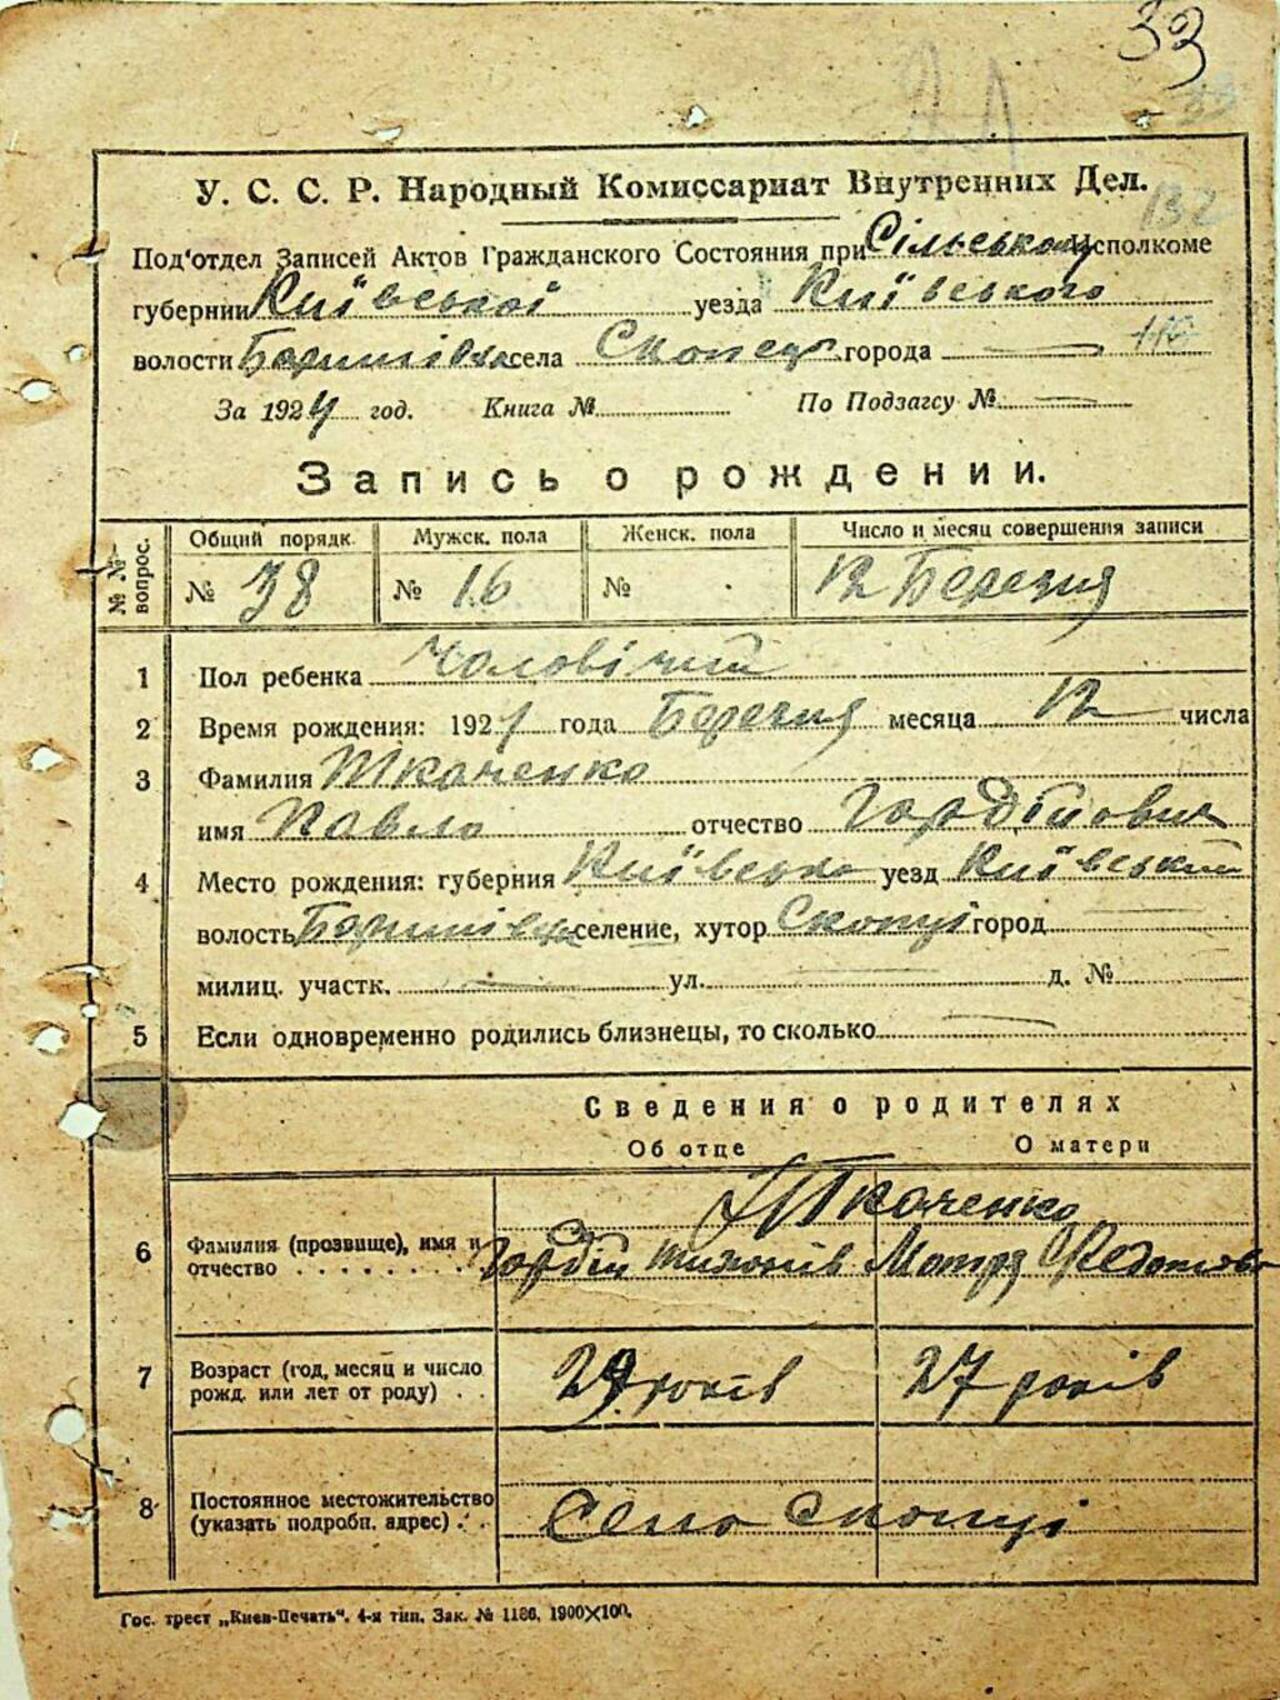 33
У. С. С. Р. Народный Комиссариат Внутренних Дел.
132
Под'отдел Записей Актов Гражданского Состояния при Сільському Исполкоме
губернии Київської уезда Київського
волости Баришівська села Скопец города —
За 1924 год. Книга № По Подзагсу № —
Запись о рождении.
№ № вопрос. Общий порядк. Мужск. пола Женск. пола Число и месяц совершения записи
№ 38 № 16 № 12 Березня
1 Пол ребенка Чоловічий
2 Время рождения: 192 года Березня месяца 12 числа
3 Фамилия Ткаченко
имя Павло отчество Гордійович
4 Место рождения: губерния Київська уезд Київський
волость Баришівська селение, хутор Скопці город —
милиц. участк. — ул. — д. №
5 Если одновременно родились близнецы, то сколько —
Сведения о родителях
Об отце О матери
Ткаченко
6 Фамилия (прозвище), имя и Гордій Тихонів Мотря Федотова
отчество . . . . . . . .
7 Возраст (год, месяц и число 29 років 27 років
рожд. или лет от роду) . .
8 Постоянное местожительство Село Скопці
(указать подробн. адрес) . .
Гос. трест „Киев-Печать“. 4-я тип. Зак. № 1186. 1900×100.